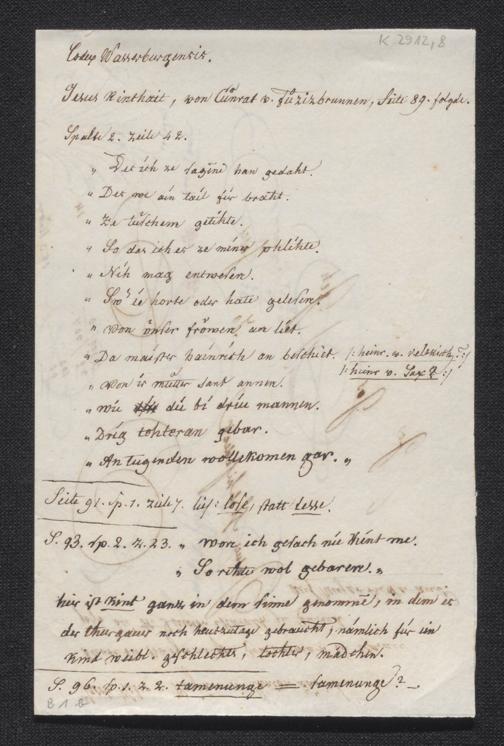 K. 2912,8
Codex Wasserburgensis.
Jesus Kinthait, von Cůnrat v. Fůzizbrunnen, Seite 89. folgde.
Spalte 2. Zeile 42.
" Des ich ze sagine han gedaht.
" Des we ain tail für braht.
" Ze tüschem getihte.
" So das ich es ze miner phlihte.
" Nih mag entwesen.
" Swˢ ie horte oder hate gelesen.
" von ünser fröwen an liet.
" Da maister hainrich an beschiet. /: heinr. v. ?:/
/: heinr v. Sax ?:/
" Von ir mütter sant annen.
" wie dü bi driu mannen.
" Drig tohteran gebar.
" An tugenden wollekomen gar. "
Seite 91. sp. 1. zeile 7. lies: lose, statt desse.
S. 93. sp. 2. z. 23. " wan ich gesach nie kint me.
" So rehte wol gebaren. "
hier ist kint ganz in dem sinne genommē, in dem es
der thurgauer noch heutzutage gebraucht, nämlich für ein
kind weibl. geschlechts, tochter, mädchen.
S. 96. sp. 1. z. 2. tamenunge = samenunge? _
B 1. a